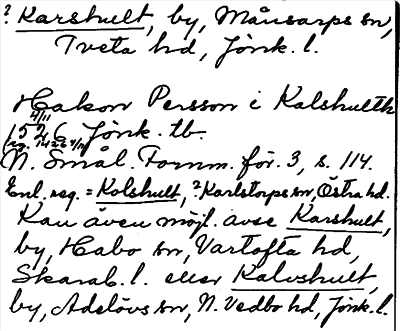 ? Karshult, by, Månsarps sn,
Tveta hd, Jönk. l.
Hakon Persson i Kalshulth
4/11
1526 Jönk. tb.
N. Smål. Fornm. för. 3, s. 114.
Enl. reg. = Kolshult, ? Karlstorps sn, Östra hd.
Kan även möjl. avse Karshult,
by, Habo sn, Vartofta hd,
Skarab. l. eller Kalvshult,
by, Adelövs sn, N. Vedbo hd, Jönk. l.